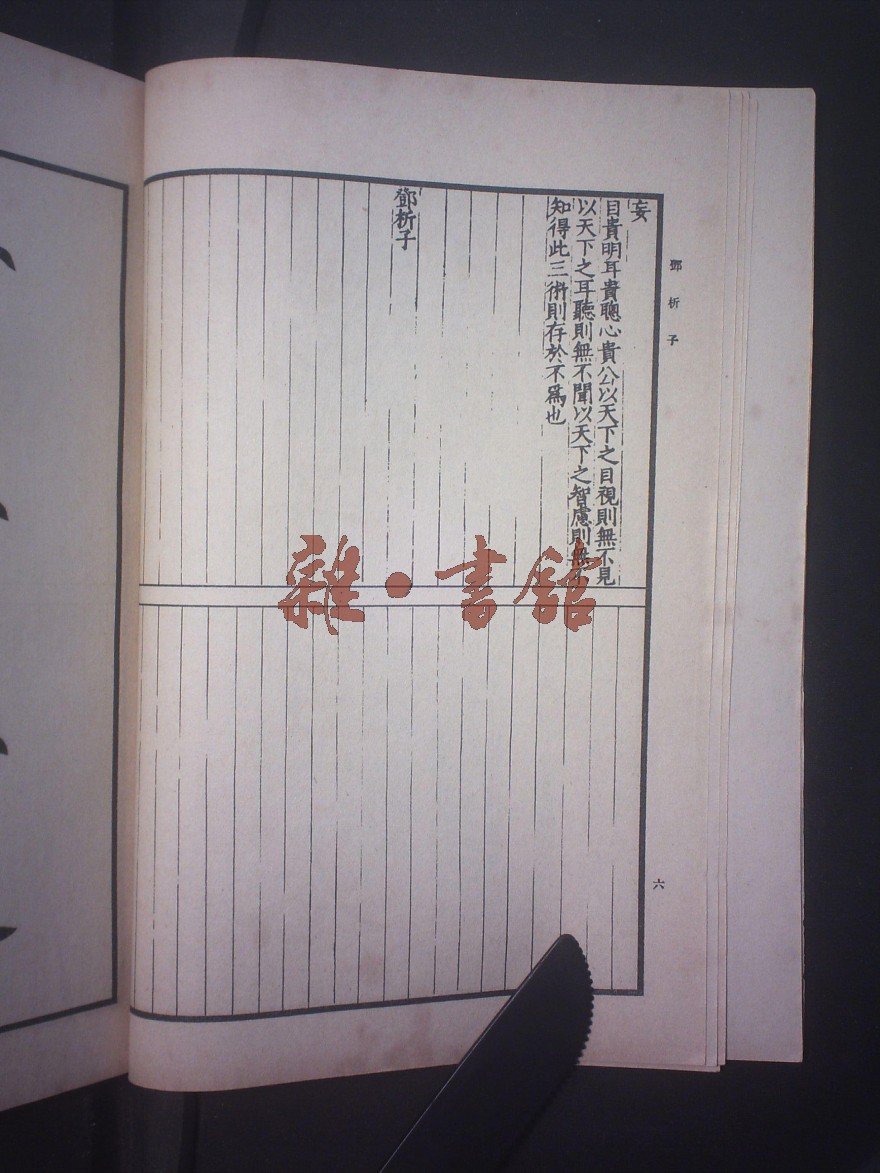 鄧析子
六
妄
目貴明耳貴聰心貴公以天下之目視則無不見
以天下之耳聽則無不聞以天下之智慮則無不
知得此三術則存於不爲也
鄧析子
雜·書館